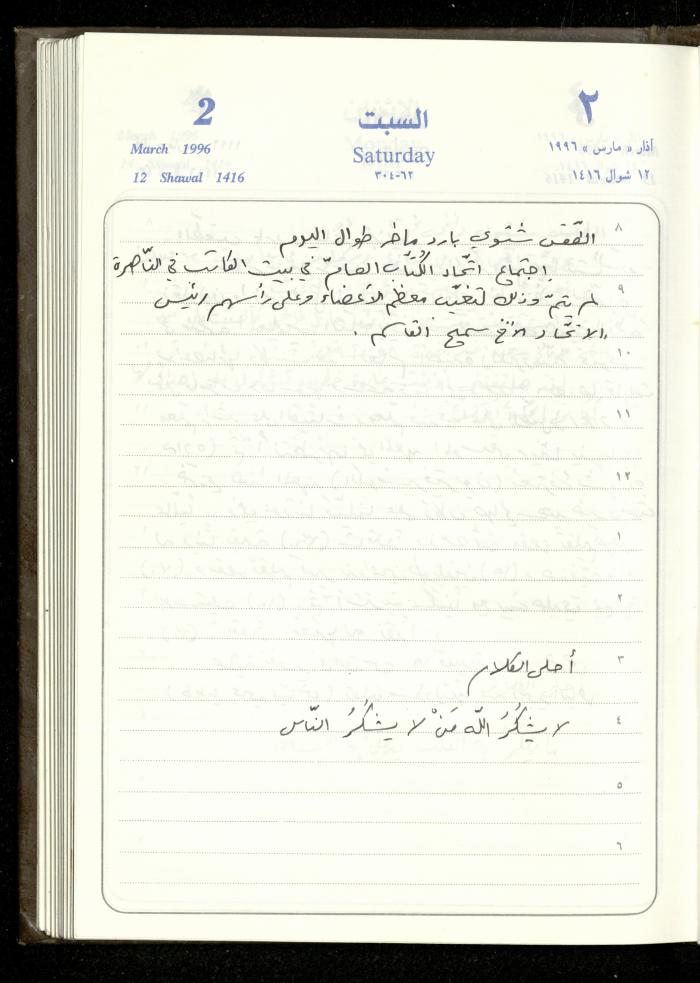 2
March 1996
12 Shawal 1416
السبت
Saturday
٣٠٤-٦٢
٢
آذار « مارس » ١٩٩٦
١٢ شوال ١٤١٦
٨
الطّقس شتوي بارد ماطر طوال اليوم
إجتماع اتّحاد الكتّاب العامّ في بيت الكاتب في النّاصرة
٩
لم يتمّ وذلك لتغيّب معظم الأعضاء وعلى رأسهم رئيس
الاتّحاد الأخ سميح القاسم .
١٠
١١
١٢
١
٢
٣
أحلى الكلام
٤
لا يشكُرُ اللّه مَنْ لا يشكُرُ النّاس
٥
٦